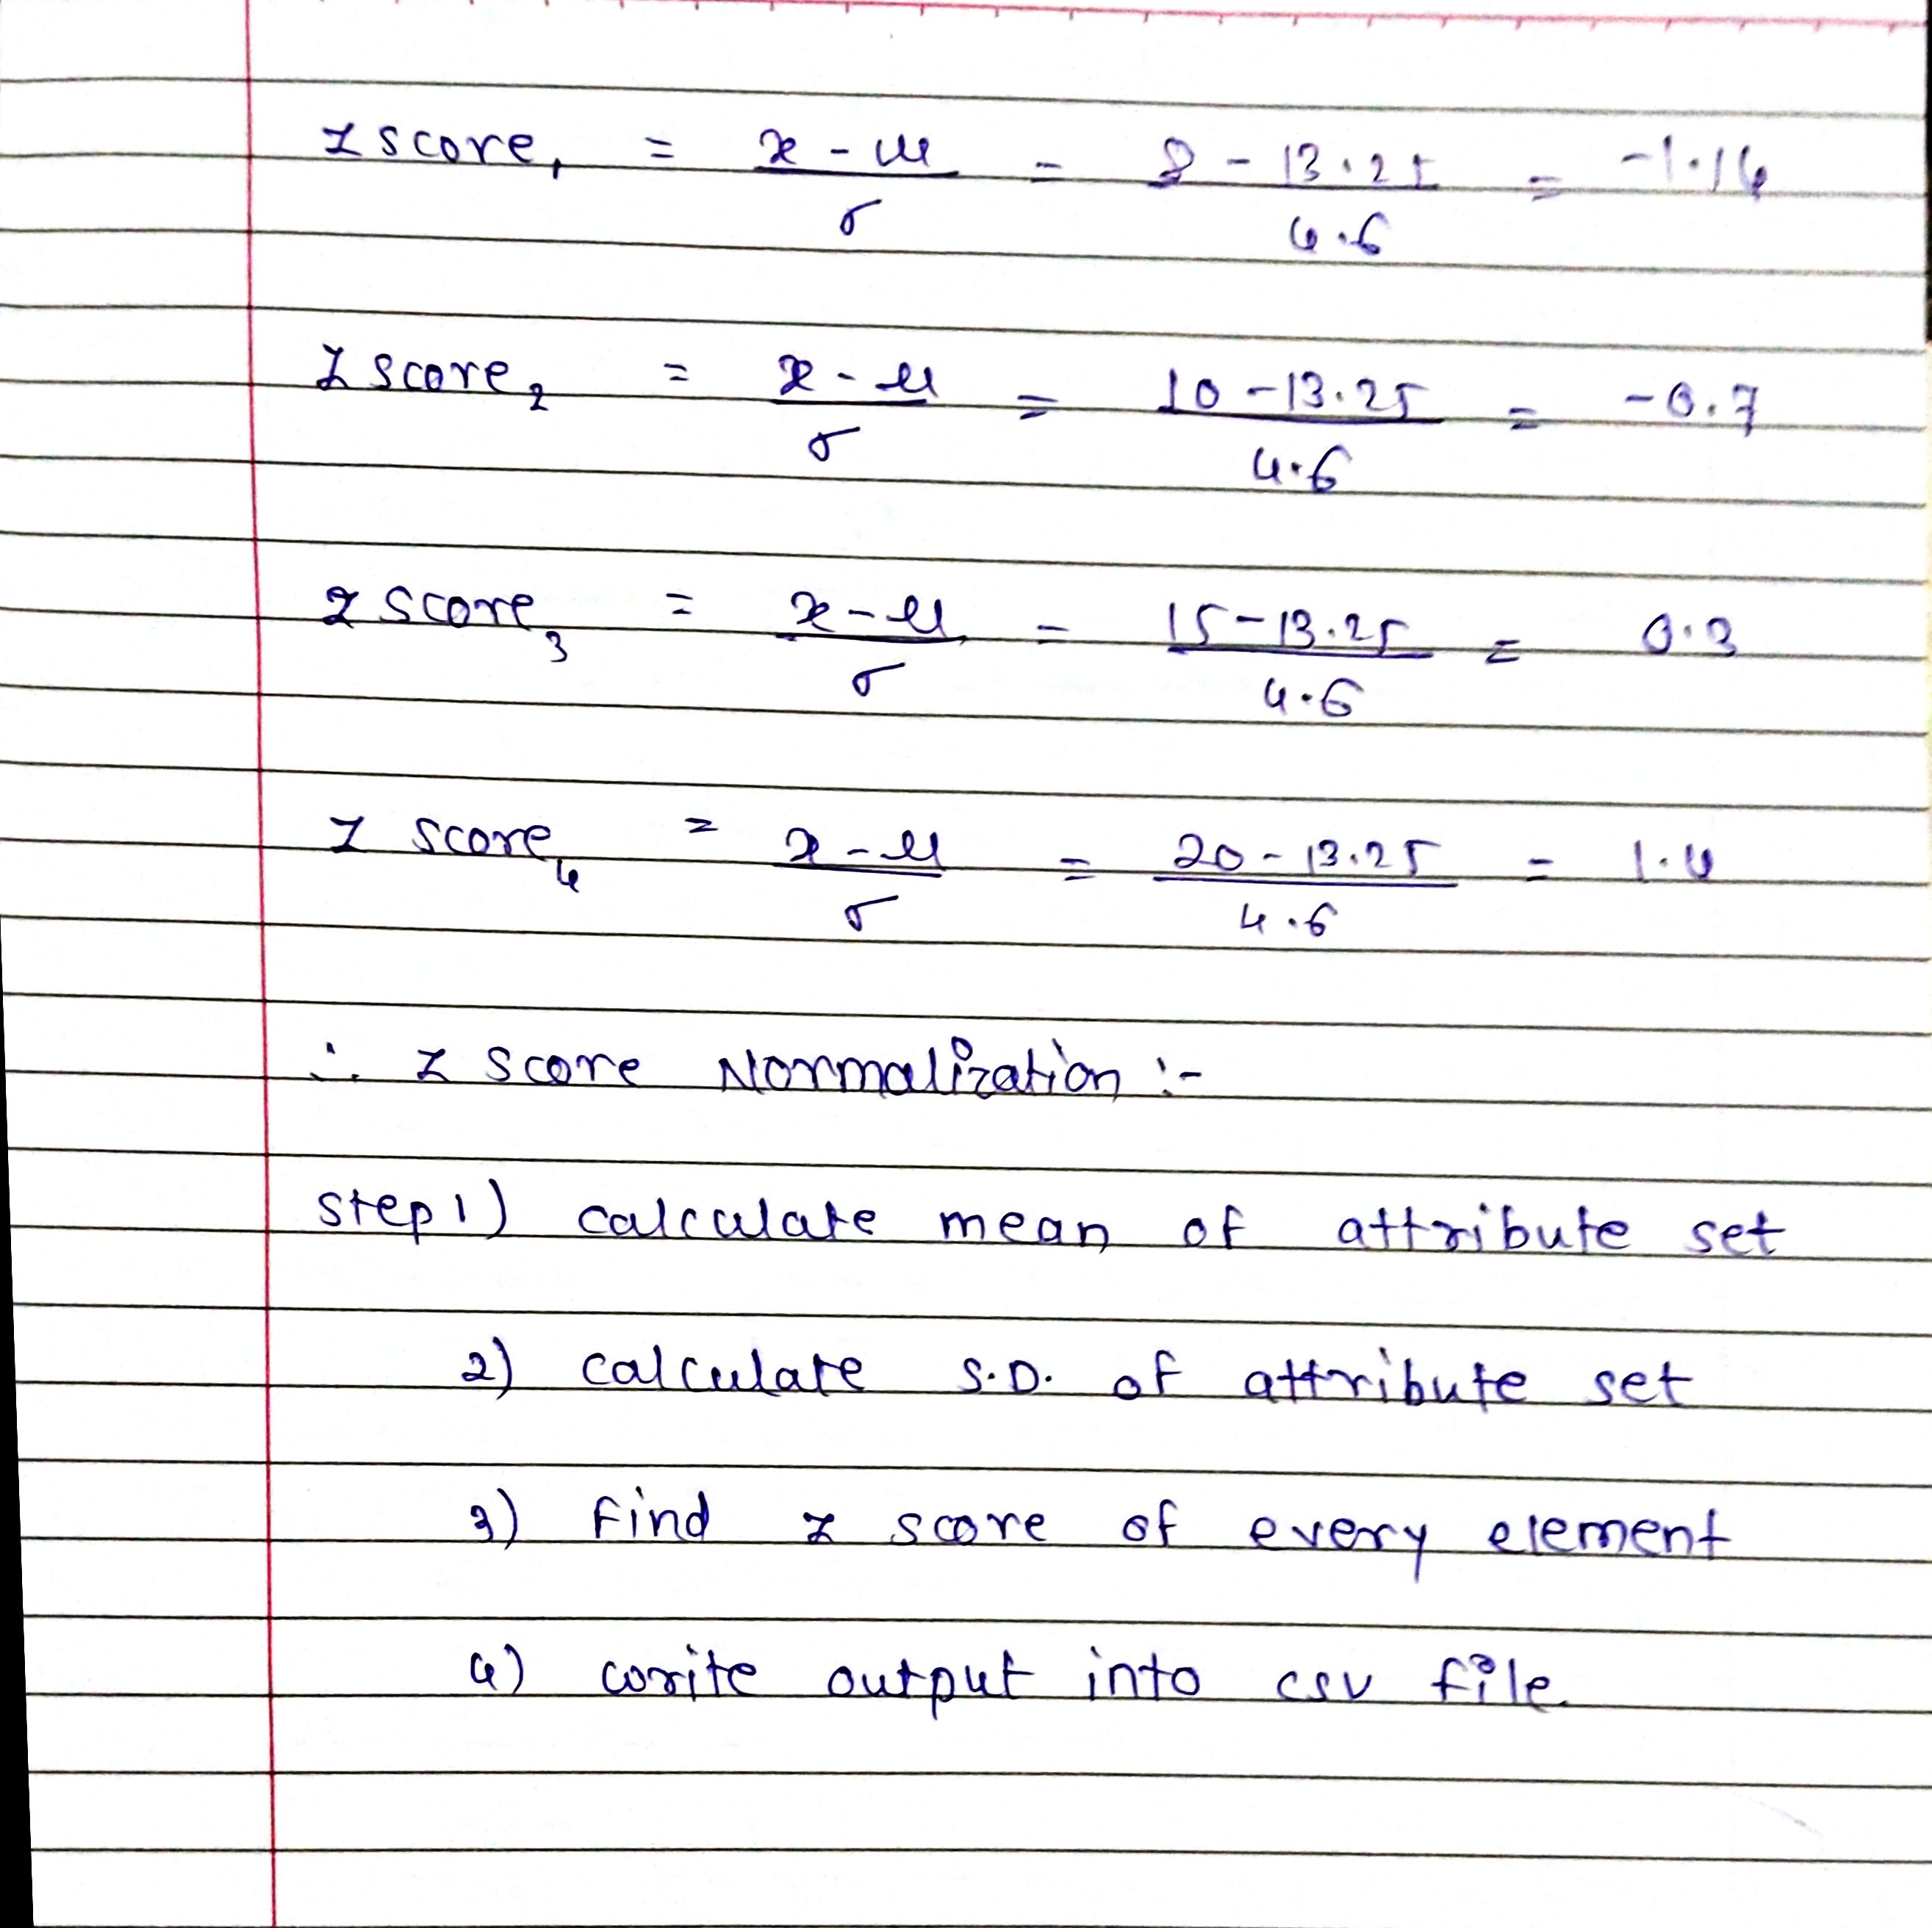 z score₁ = x - μ / σ = 8 - 13.25 / 4.6 = -1.14
z score₂ = x - μ / σ = 10 - 13.25 / 4.6 = -0.7
z score₃ = x - μ / σ = 15 - 13.25 / 4.6 = 0.3
z score₄ = x - μ / σ = 20 - 13.25 / 4.6 = 1.4
∴ z score Normalization :-
step 1) calculate mean of attribute set
2) calculate S.D. of attribute set
3) Find z score of every element
4) write output into csv file.